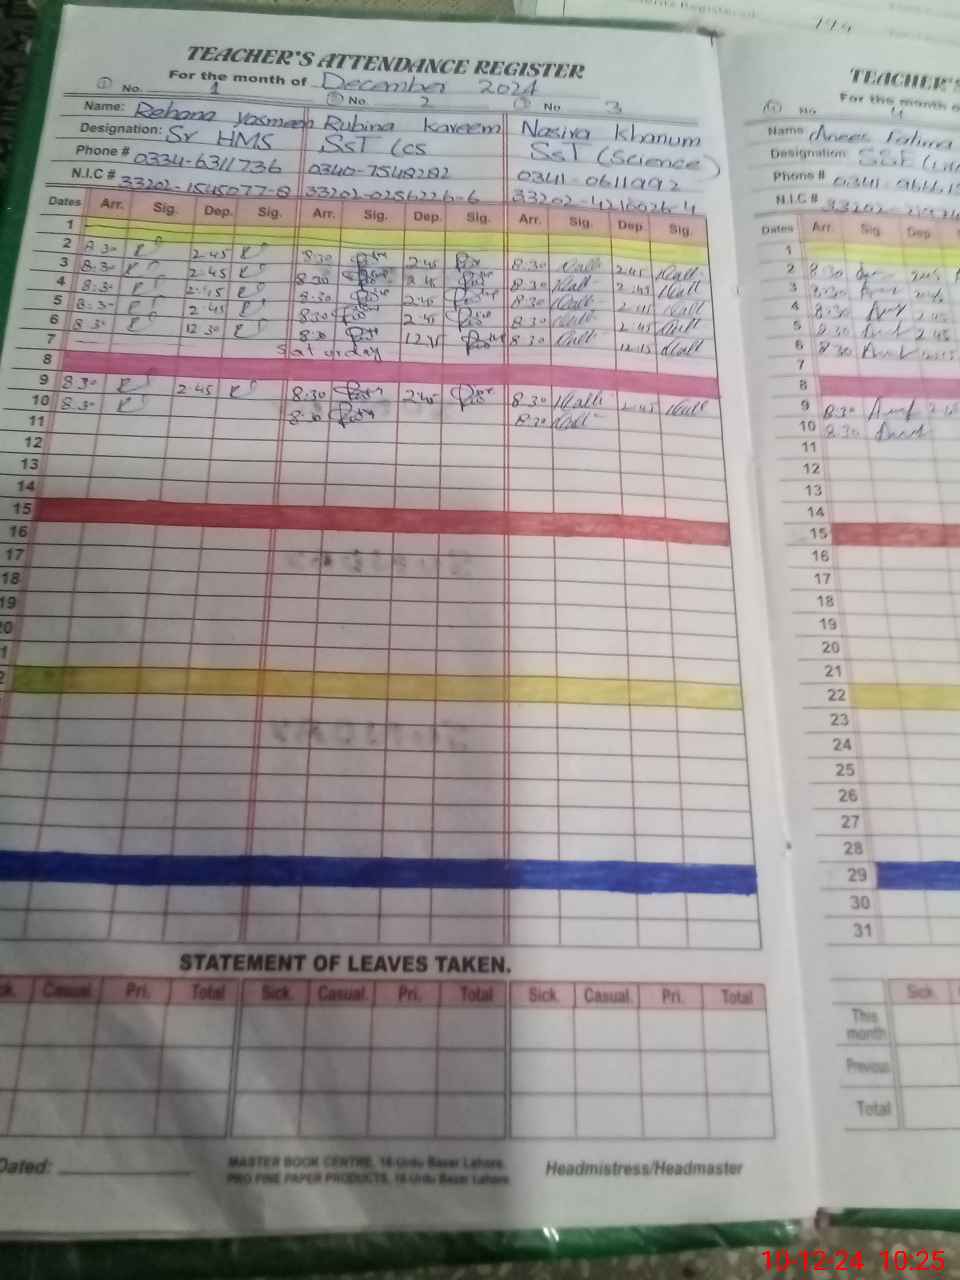 TEACHER'S ATTENDANCE REGISTER
For the month of December 2024
① No. 1 ② No 2 ③ No 3
Name: Rehana Yasmeen Rubina kareem Nasira khanum
Designation: Sr HMS SST (cs SST (Science)
Phone # 0334-6311736 0340-7548282 0341-0611992
N.I.C # 33202-1545077-8 33202-0256226-6 33202-4216026-4
Dates Arr. Sig. Dep. Sig. Arr. Sig. Dep. Sig. Arr. Sig. Dep Sig.
1
2 8.30 2.45 8.30 2.45 8.30 2.45
3 8.30 2.45 8.30 2.45 8.30 2.45
4 8.30 2.45 8.30 2.45 8.30 2.45
5 8.30 2.45 8.30 2.45 8.30 2.45
6 8.30 12 30 8.30 12.15 8.30 12.15
7 Saturday
8
9 8.30 2.45 8.30 2.45 8.30 2.45
10 8.30 8.30 8.30
11
12
13
14
15
16
17
18
19
STATEMENT OF LEAVES TAKEN.
Casual. Pri. Total Sick. Casual. Pri. Total Sick. Casual. Pri. Total
Dated:
MASTER BOOK CENTRE, 16-Urdu Bazar Lahore.
PRO FINE PAPER PRODUCTS, 16-Urdu Bazar Lahore.
Headmistress/Headmaster
TEACHER'S
For the month o
No 4
Name Anees Fatima
Designation SSE
Phone # 0341
N.I.C # 33202
Dates Arr. Sig. Dep
1
2 8 30 2.45
3 8:30 2.45
4 8.30 2.45
5 8.30 2.45
6 8.30 12.15
7
8
9 8.30
10 8.30
11
12
13
14
15
16
17
18
19
20
21
22
23
24
25
26
27
28
29
30
31
Sick.
This month
Previous
Total
10-12-24 10:25